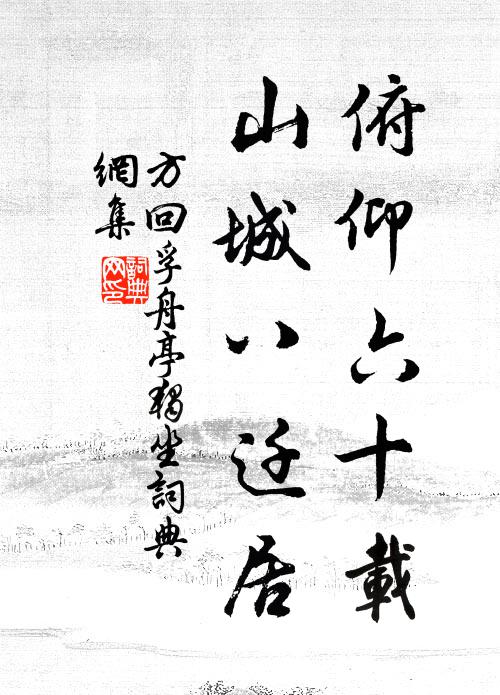 俯仰六十載
山城八迁居
方回孚舟亭獨坐詞典
網集
詞典網印